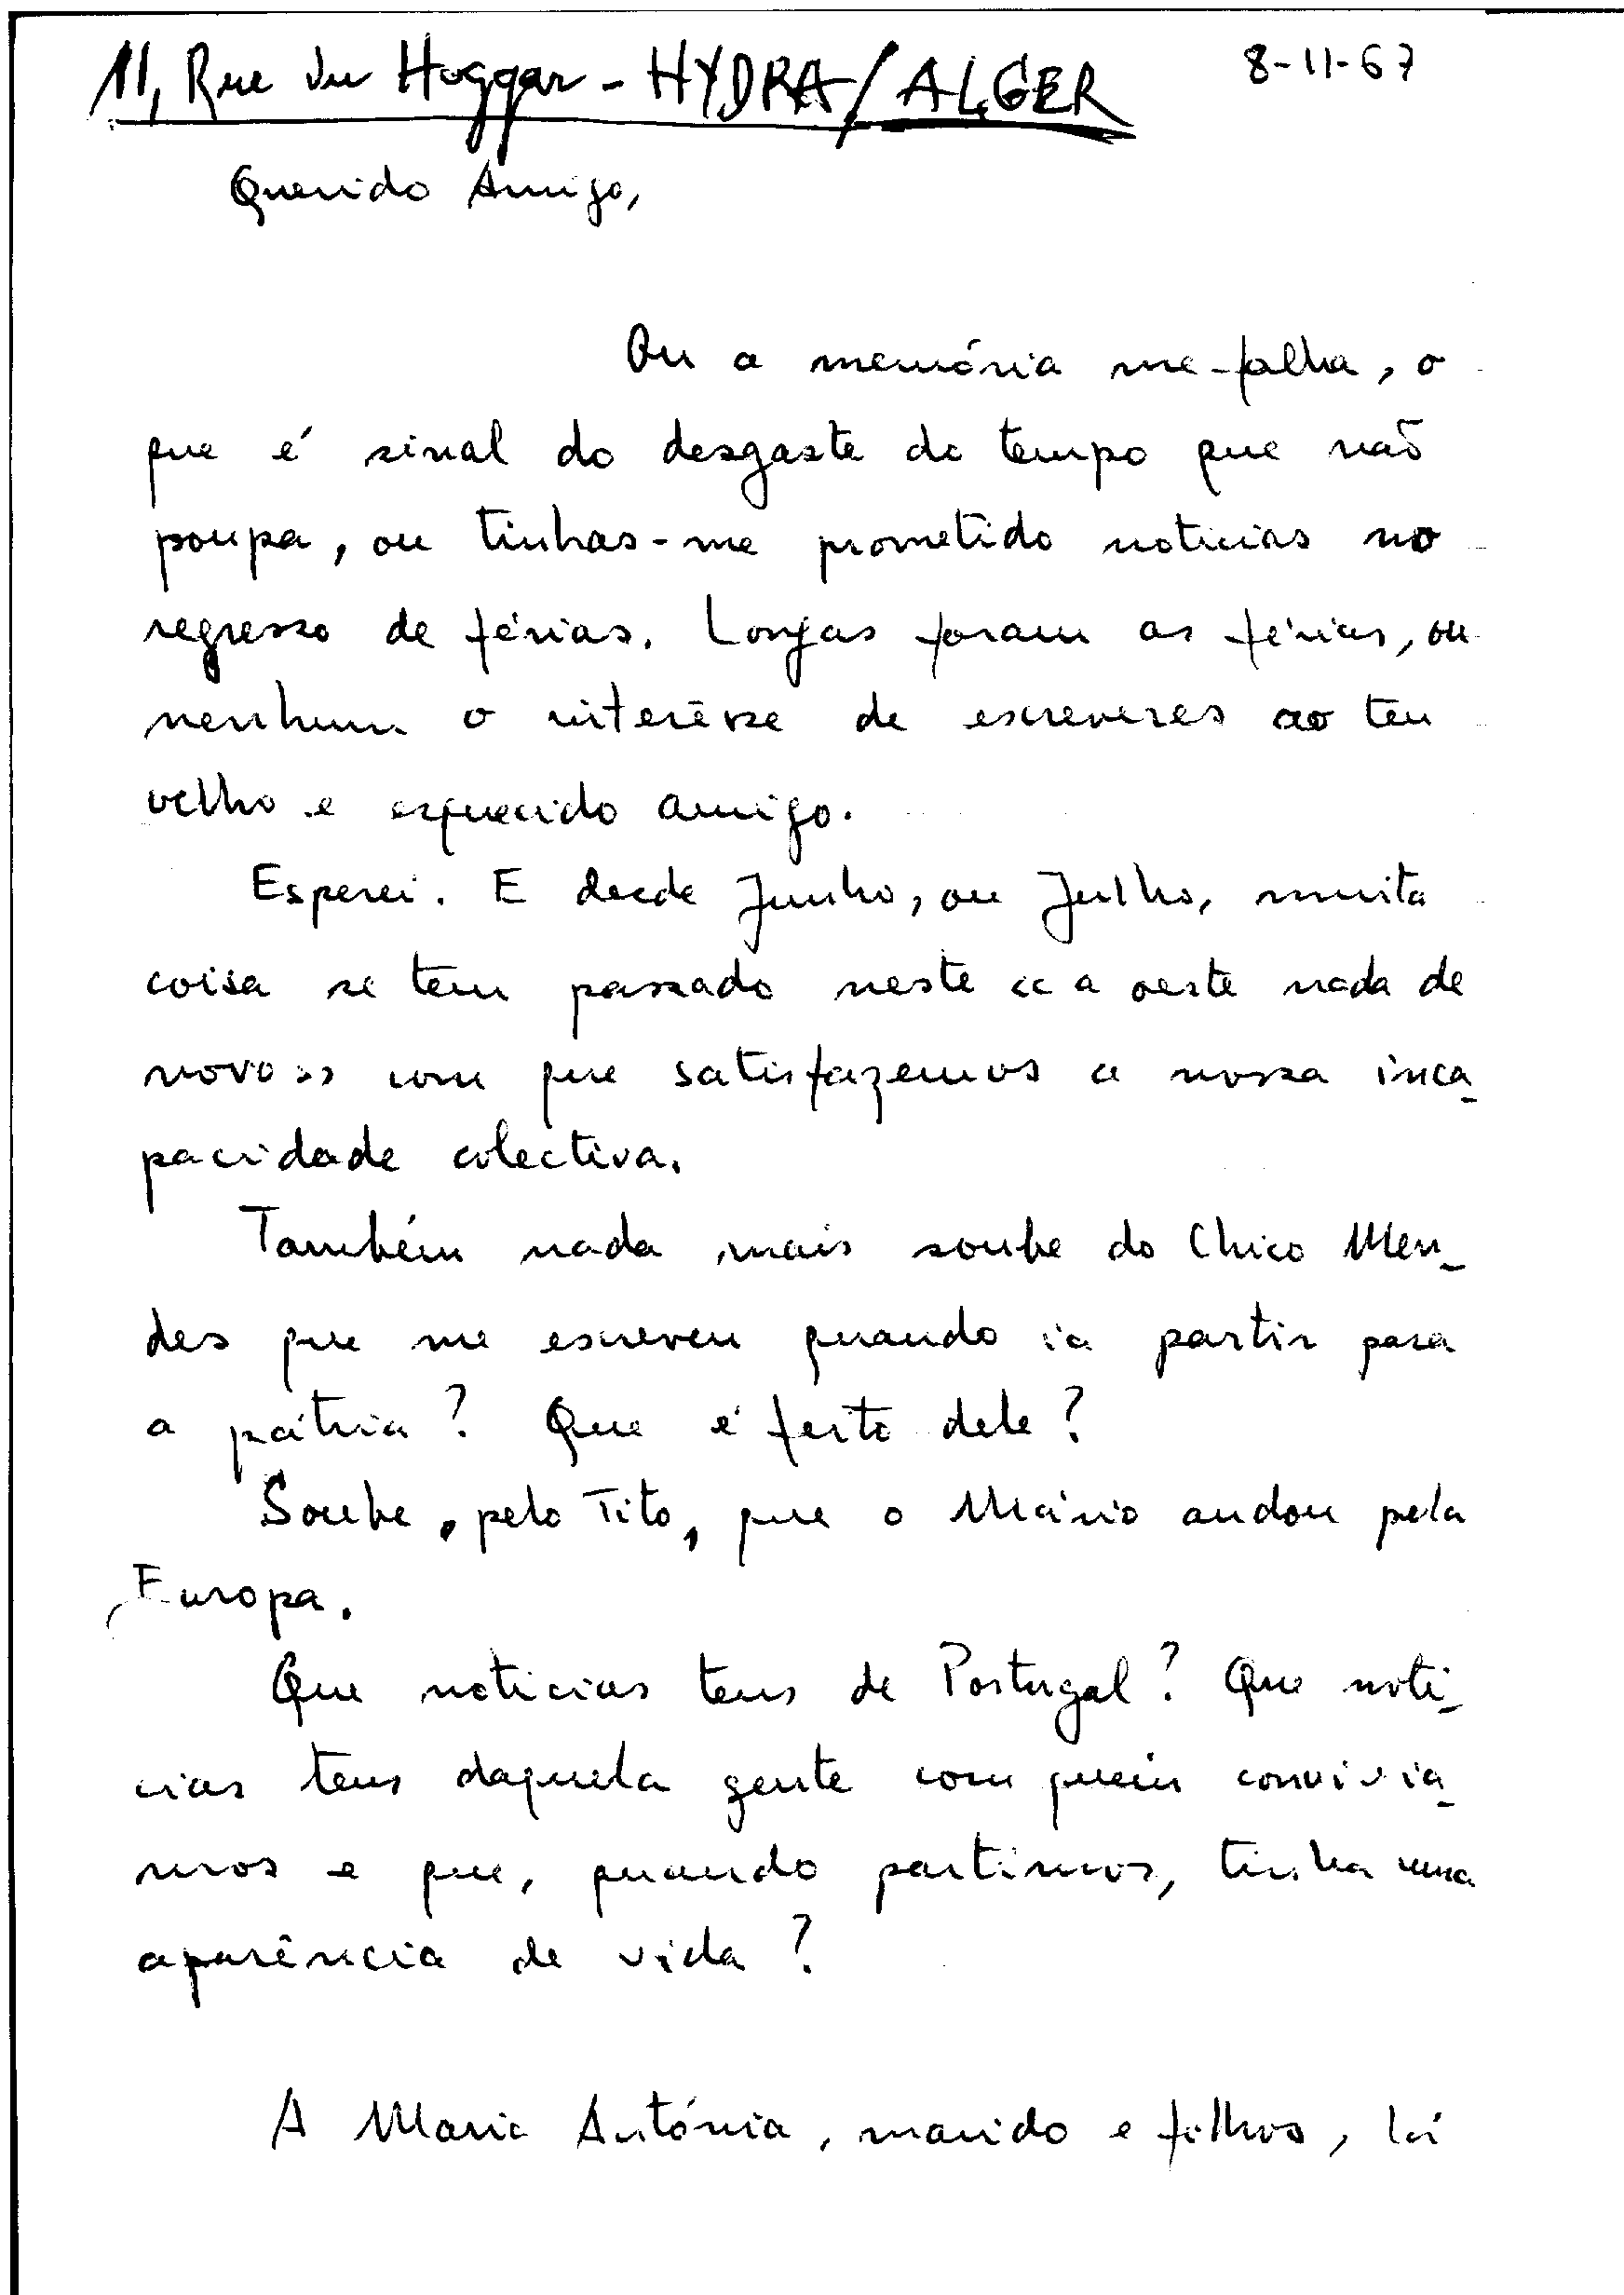 11, Rue du Hoggar - HYDRA/ALGER
8-11-67
Querido Amigo,
Ou a memória me-falha, o
que é sinal do desgaste do tempo que não
poupa, ou tinhas-me prometido noticias no
regresso de férias. Longas foram as férias, ou
nenhum o interêsse de escreveres ao teu
velho e esquecido amigo.
Esperei. E desde Junho, ou Julho, muita
coisa se tem passado neste «a oeste nada de
novo» com que satisfazemos a nossa inca-
pacidade colectiva.
Também nada mais soube do Chico Men-
des que me escreveu quando ia partir para
a pátria? Que é feito dele?
Soube, pelo Tito, que o Mário andou pela
Europa.
Que noticias tens de Portugal? Que noti-
cias tens daquela gente com quem convivia-
mos e que, quando partimos, tinha uma
aparência de vida?
A Maria Antónia, marido e filhos, lá